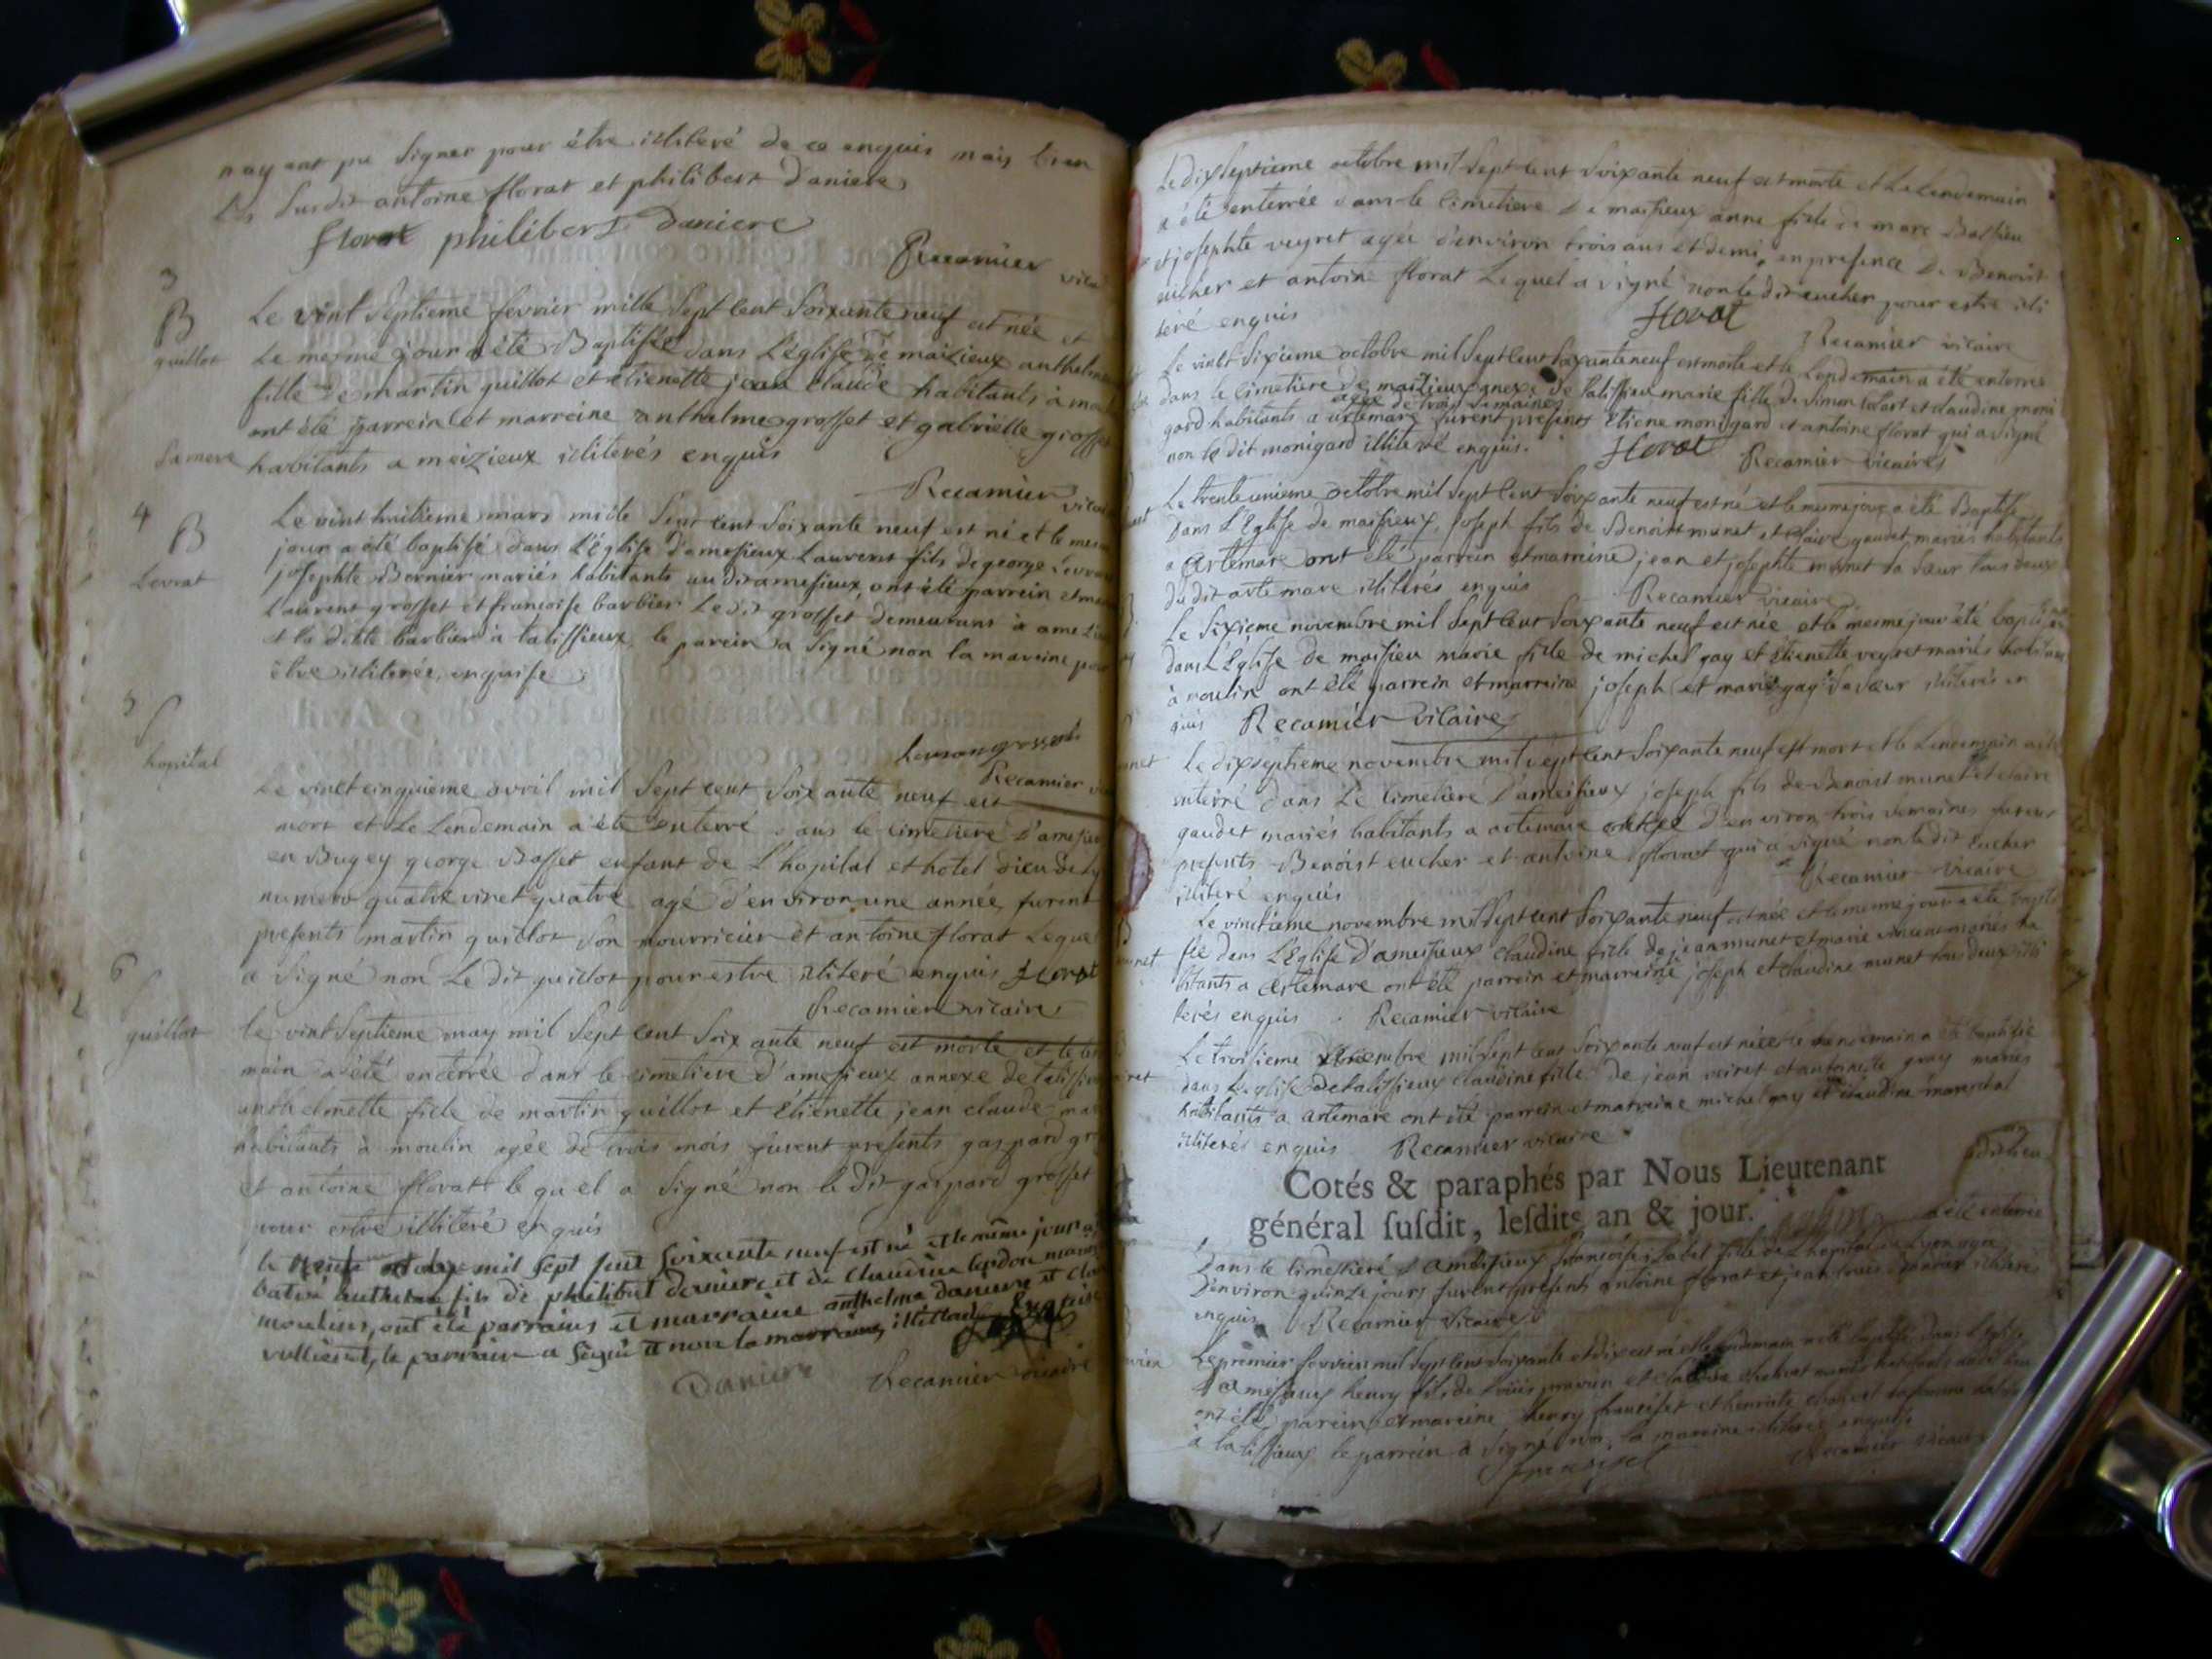 n'ayant pu signer pour être illiteré de ce enquis mais bien
Les susdit antoine florat et philibert daniere
florat philibert Daniere
Recamier vica
3
B
guillot
Le vint septieme fevrier mille sept cent soixante neuf est née et
Le mesme jour a été Baptisée dans L'église de maizieux anthelme
fille de martin guillot et etienette jean claude habitants à mou
ont été parrein et marreine anthelme grosset et gabrielle grosset
sa mere habitants a meizieux illiterés enquis
Recamier vicai
4
B
Levrat
Le vint huitieme mars mille sept cent soixante neuf est né et le mes
jour a été baptisé dans L'Église d'amesieux Laurent fils de george Levrat
josephte Bernier mariés habitants au dit amesieux, ont été parrein et mar
Laurent grosset et francoise barbier Le dit grosset demeurant à amezieu
et la ditte barbier à talissieux, le parein a signé non la mareine pour
être illiterée, enquise
5
hopital
Recamier vi
Le vinct cinquieme avril mil sept cent soixante neuf est
mort et Le Lendemain a été enterré dans le cimetiere d'amesieu
en Bugey george Basset enfant de L'hopital et hotel dieu de Ly
numero quatre vinct quatre agé d'environ une année, furent
presents martin guillot son nourricier et antoine florat Leque
a signé non Le dit guillot pour estre illiteré enquis florat
Recamier vicaire
6
guillot
le vint septieme may mil sept cent soixante neuf est morte et le len
main a été enterrée dans le cimetiere d'amesieux annexe de talissie
anthelmette fille de martin guillot et Etienette jean claude mar
habitants à moulin agée de trois mois furent presents gaspard gr
et antoine florat le quel a signé non le dit gaspard grosset
pour estre illiteré enquis
le mil sept cent soixante neuf est né et le même jour a
batisé anthelme fils de philibert daniere et de Claudine mariés
moulins, ont été parrains et marraine anthelme daniere et cla
le parrain a signé et non la marraine, illitterée Enquise
Daniere Recamier vicaire
Le dix septieme octobre mil sept cent soixante neuf est morte et Le Lendemain
a été enterrée dans le cimetiere de maisieux anne fille de marc Bathieu
et josephte veyret agée d'environ trois ans et demi, en presence de Benoist
eucher et antoine florat Lequel a signé non ledit eucher pour estre illi
teré enquis
florat
Recamier vicaire
Le vinct sixieme octobre mil sept cent soixante neuf est morte et le Lendemain a été enterrée
dans le cimetiere de maizieux annexe de Talissieu marie fille de simon et claudine moni
agée de trois semaines
gard habitants a artemare furent presents Etiene monigard et antoine florat qui a signé
non le dit monigard illiteré enquis.
florat
Recamier vicaires
Le trente unieme octobre mil sept cent soixante neuf est né et le meme jour a été Baptisé
dans L'Eglise de maisieux, joseph fils de Benoist munet et claire gaudet mariés habitants
a artemare ont été parrein et marreine jean et josephte munet sa sœur tous deux
du dit artemare illiterés enquis
Recamier vicaire
Le sixieme novembre mil sept cent soixante neuf est née et le mesme jour été baptisée
dans L'Église de maisieu marie fille de michel gay et étienette veyret mariés habitans
à moulin ont été parrein et marreine joseph et marie gay sa sœur illiterés en
quis Recamier vicaire
Le dix septieme novembre mil sept cent soixante neuf est mort et le Lendemain a été
enterré dans Le cimetiere d'amesieux joseph fils de Benoist munet et claire
gaudet mariés habitants a artemare agé d'environ trois semaines furent
presents Benoist eucher et antoine florat qui a signé non ledit Eucher
illiteré enquis
Recamier vicaire
Le vinctieme novembre mil sept cent soixante neuf est née et le mesme jour a été bapti
sée dans L'Eglise d'amesieux claudine fille de jean munet et marie vincent mariés ha
bitants a artemare ont été parrein et marreine joseph et claudine munet tous deux illi
terés enquis Recamier vicaire
Le troisieme mil sept cent soixante neuf est née et le Lendemain a été baptisée
dans L'église de talissieux claudine fille de jean veiret et antoinette gay mariés
habitants a artemare ont été parrein et marreine michel gay et claudine marechal
illiterés enquis Recamier vicaire
Cotés & paraphés par Nous Lieutenant
général ſuſdit, leſdits an & jour.
a été enterrée
Dans le cimetiere d'amesieux fille de L'hopital de Lyon agée
D'environ quinze jours furent presents antoine florat et jean louis illiterés
enquis Recamier vicaire
Le premier fevrier mil sept cent soixante et dix est né et le lendemain a été baptisé dans L'église
d'amesieux henry fils de Louis et mariés habitants
ont été parrein et mareine henry francisset et
à talissieux le parrein a signé non la mareine illiterée enquise
Recamier vicaire